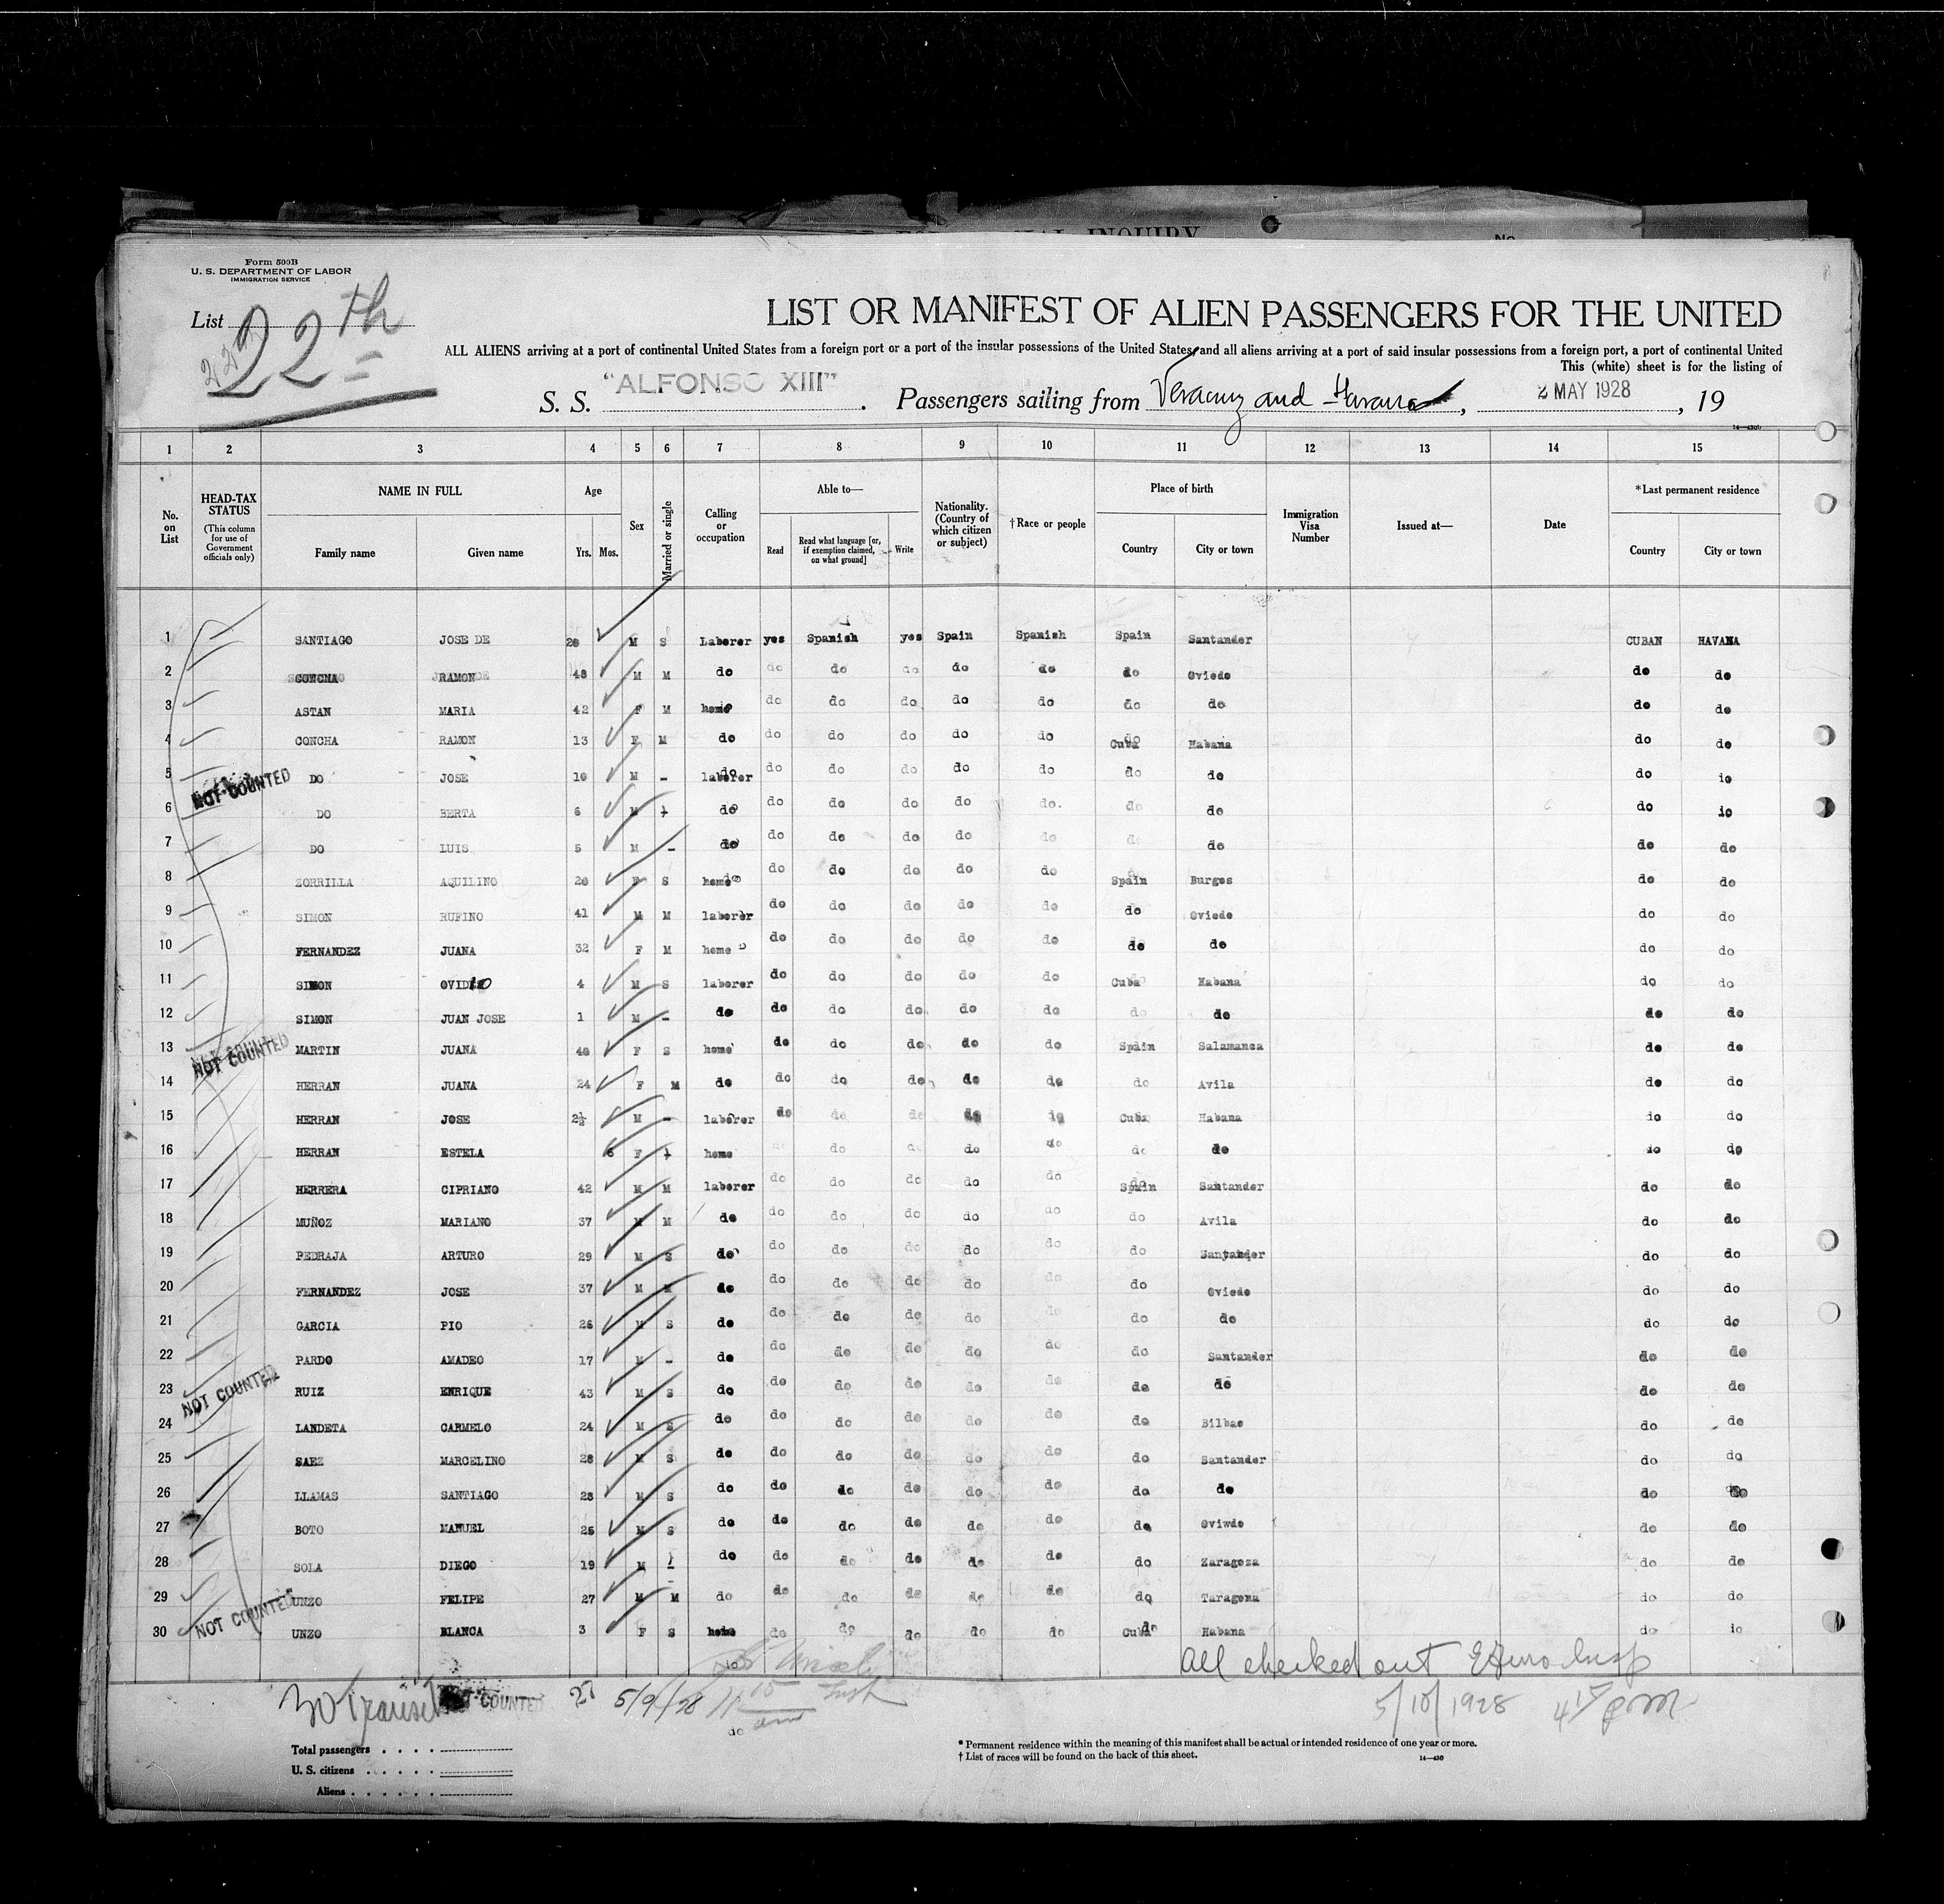 SPECIAL INQUIRY
No.
Form 500B
U. S. DEPARTMENT OF LABOR
IMMIGRATION SERVICE
List 22th
LIST OR MANIFEST OF ALIEN PASSENGERS FOR THE UNITED
ALL ALIENS arriving at a port of continental United States from a foreign port or a port of the insular possessions of the United States, and all aliens arriving at a port of said insular possessions from a foreign port, a port of continental United
This (white) sheet is for the listing of
S. S. "ALFONSO XIII". Passengers sailing from Veracruz and Havana, 2 MAY 1928, 19
14—430b
1 2 3 4 5 6 7 8 9 10 11 12 13 14 15
No. on List
HEAD-TAX STATUS (This column for use of Government officials only)
NAME IN FULL Family name Given name
Age Yrs. Mos.
Sex
Married or single
Calling or occupation
Able to— Read Read what language [or, if exemption claimed, on what ground] Write
Nationality. (Country of which citizen or subject)
†Race or people
Place of birth Country City or town
Immigration Visa Number
Issued at—
Date
*Last permanent residence Country City or town
1 SANTIAGO JOSE DE 28 M S Laborer yes Spanish yes Spain Spanish Spain Santander CUBAN HAVANA
2 CONCHA RAMON 48 M M do do do do do do do Oviedo do do
3 ASTAN MARIA 42 F M home do do do do do do do do do
4 CONCHA RAMON 13 F M do do do do do do Cuba Habana do do
5 DO JOSE 10 M - laborer do do do do do do do do do
NOT COUNTED
6 DO BERTA 6 M do do do do do do. do do do do
7 DO LUIS 5 M - do do do do do do do do do do
8 ZORRILLA AQUILINO 20 F S home do do do do do Spain Burgos do do
9 SIMON RUFINO 41 M M laborer do do do do do do Oviedo do do
10 FERNANDEZ JUANA 32 F M home do do do do do do do do do
11 SIMON OVIDIO 4 M S laborer do do do do do Cuba Habana do do
12 SIMON JUAN JOSE 1 M - do do do do do do do do do do
13 MARTIN JUANA 40 F S home do do do do do Spain Salamanca do do
NOT COUNTED
14 HERRAN JUANA 24 F M do do do do do do do Avila do do
15 HERRAN JOSE 2½ M - laborer do do do do do Cuba Habana do do
16 HERRAN ESTELA 6 F home do do do do do do do do
17 HERRERA CIPRIANO 42 M M laborer do do do do do Spain Santander do do
18 MUÑOZ MARIANO 37 M M do do do do do do do Avila do do
19 PEDRAJA ARTURO 29 M S do do do do do do do Santander do do
20 FERNANDEZ JOSE 37 M M do do do do do do do Oviedo do do
21 GARCIA PIO 26 M S do do do do do do do do do do
22 PARDO AMADEO 17 M - do do do do do do do Santander do do
23 RUIZ ENRIQUE 43 M S do do do do do do do do do do
NOT COUNTED
24 LANDETA CARMELO 24 M S do do do do do do do Bilbao do do
25 SAEZ MARCELINO 28 M S do do do do do do do Santander do do
26 LLAMAS SANTIAGO 23 M S do do do do do do do do do do
27 BOTO MANUEL 25 M S do do do do do do do Oviwdo do do
28 SOLA DIEGO 19 M - do do do do do do do Zaragoza do do
29 UNZO FELIPE 27 M M do do do do do do do Taragona do do
30 UNZO BLANCA 3 F S home do do do do do Cuba Habana do do
NOT COUNTED
All checked out
30 Transit NOT COUNTED 27 5/9/28 11 15 am Insp
5/10/1928 4 15 PM
Total passengers . . . .
U. S. citizens . . . . .
Aliens . . . . . .
* Permanent residence within the meaning of this manifest shall be actual or intended residence of one year or more.
† List of races will be found on the back of this sheet.
14—430